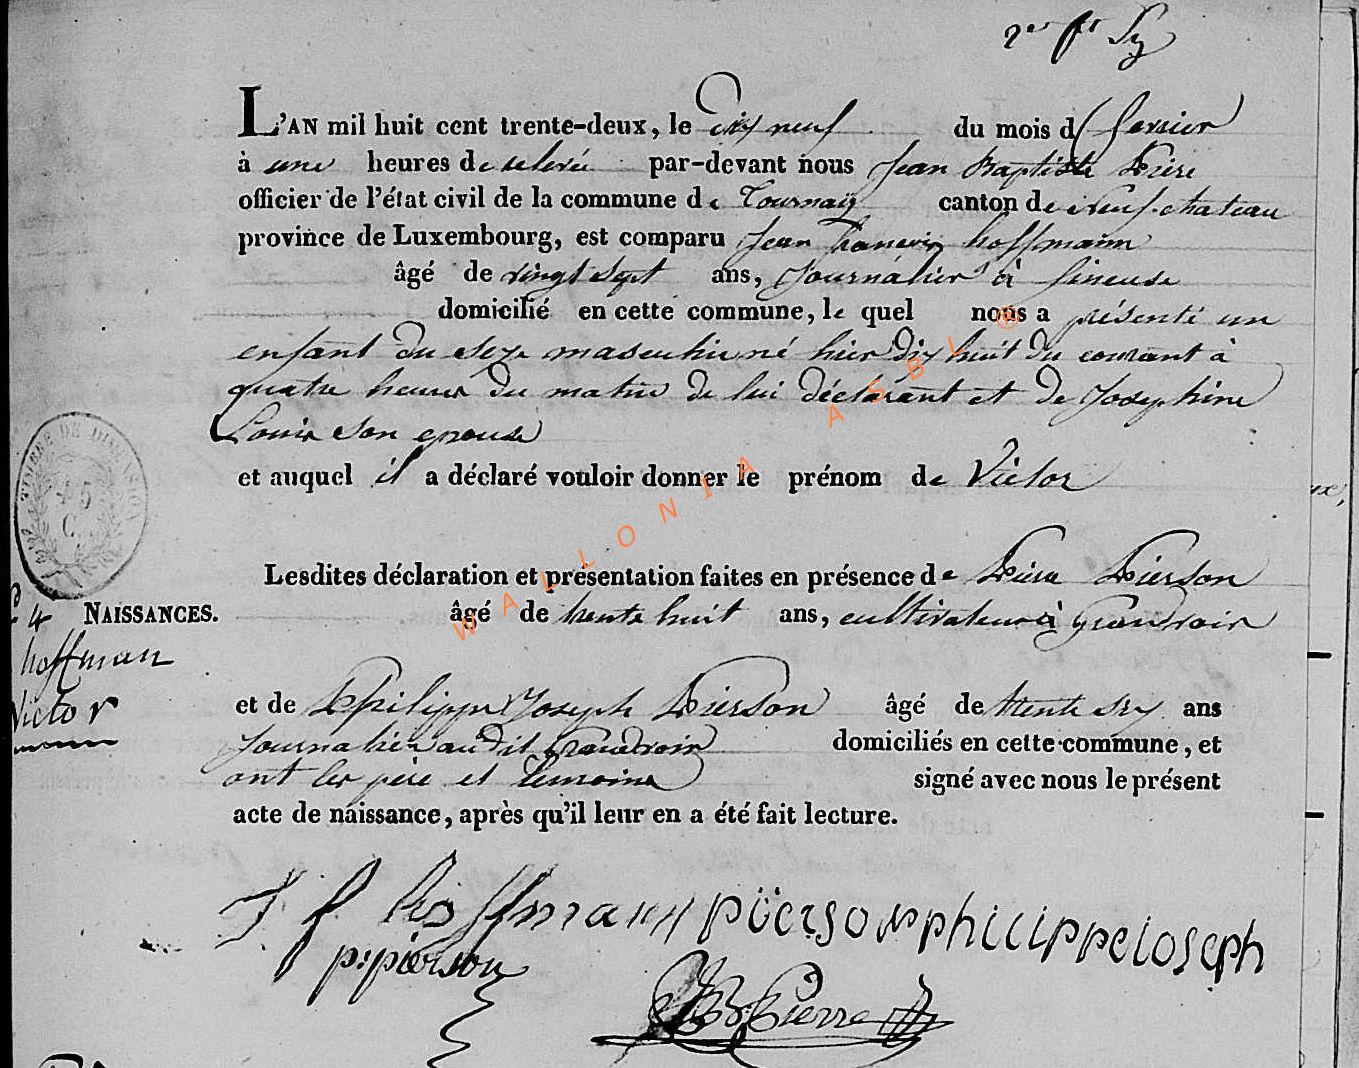 L'AN mil huit cent trente-deux, le dix neuf du mois de fevrier
à une heures de relevée par-devant nous Jean Baptiste Pière
officier de l'état civil de la commune de Tournay canton de neufchateau
province de Luxembourg, est comparu Jean françois hoffmann
âgé de vingt sept ans, Journalier à fineuse
domicilié en cette commune, le quel nous a présenté un
enfant du sexe masculin né hier dix huit du courant à
quatre heures du matin de lui déclarant et de Josephine
Louis son epouse
et auquel il a déclaré vouloir donner le prénom de Victor
Lesdites déclaration et présentation faites en présence de Pierre Pierson
NAISSANCES. âgé de trente huit ans, cultivateur à Grandvoir
hoffman
Victor
et de Philippe Joseph Pierson âgé de trente six ans
Journalier audit Grandvoir domiciliés en cette commune, et
ont les père et temoins signé avec nous le présent
acte de naissance, après qu'il leur en a été fait lecture.
J f hoffmann pierson philippe ioseph
p: pierson
JB Pierre
WALLONIA ASBL ©